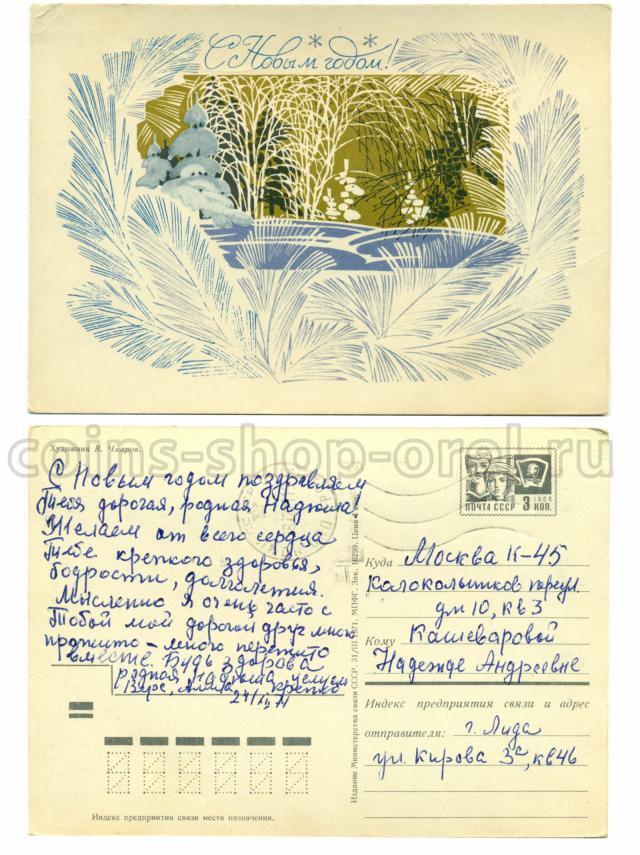 С Новым годом!
coins-shop-orel.ru
Художник В. Чмаров.
С Новым годом поздравляем
Тебя дорогая, родная Надюша!
Желаем от всего сердца
Тебе крепкого здоровья,
бодрости, долголетия.
Мысленно я очень часто с
Тобой мой дорогой друг много
прожито - много пережито
вместе. Будь здорова
родная Надюша целуем
крепко
24/XII 71
Издание Министерства связи СССР. 31/III 1971. МПФГ. Зак. 16299. Цена 4 коп.
ПОЧТА СССР 3 КОП.
1966
Куда Москва К-45
Колокольников переул.
дм 10, кв 3
Кому Кашеваровой
Надежде Андреевне
Индекс предприятия связи и адрес
отправителя: г. Лида
ул. Кирова 3а, кв 46
Индекс предприятия связи места назначения.